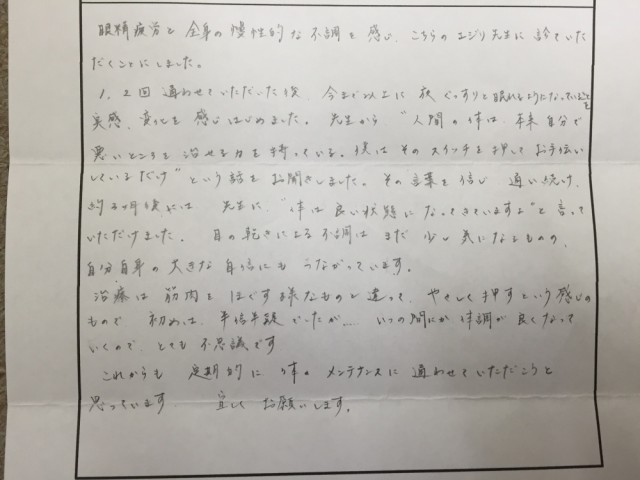 眼精疲労と全身の慢性的な不調を感じ、こちらのエジリ先生に診ていた
だくことにしました。
1、2回通わせていただいた後、今まで以上に夜ぐっすりと眠れるようになっていることを
実感、変化を感じはじめました。先生から、"人間の体は、本来自分で
悪いところを治せる力を持っている。僕はそのスイッチを押してお手伝い
しているだけ"という話をお聞きしました。その言葉を信じ通い続け、
約2ヶ月後には、先生に、"体は良い状態になってきていますよ"と言って
いただけました。目の乾きによる不調はまだ少し気になるものの、
自分自身の大きな自信にもつながっています。
治療は筋肉をほぐす様なものと違って、やさしく押すという感じの
もので初めは、半信半疑でしたが…、いつの間にか体調が良くなって
いくので、とても不思議です
これからも定期的に、体のメンテナンスに通わせていただこうと
思っています。宜しくお願いします。